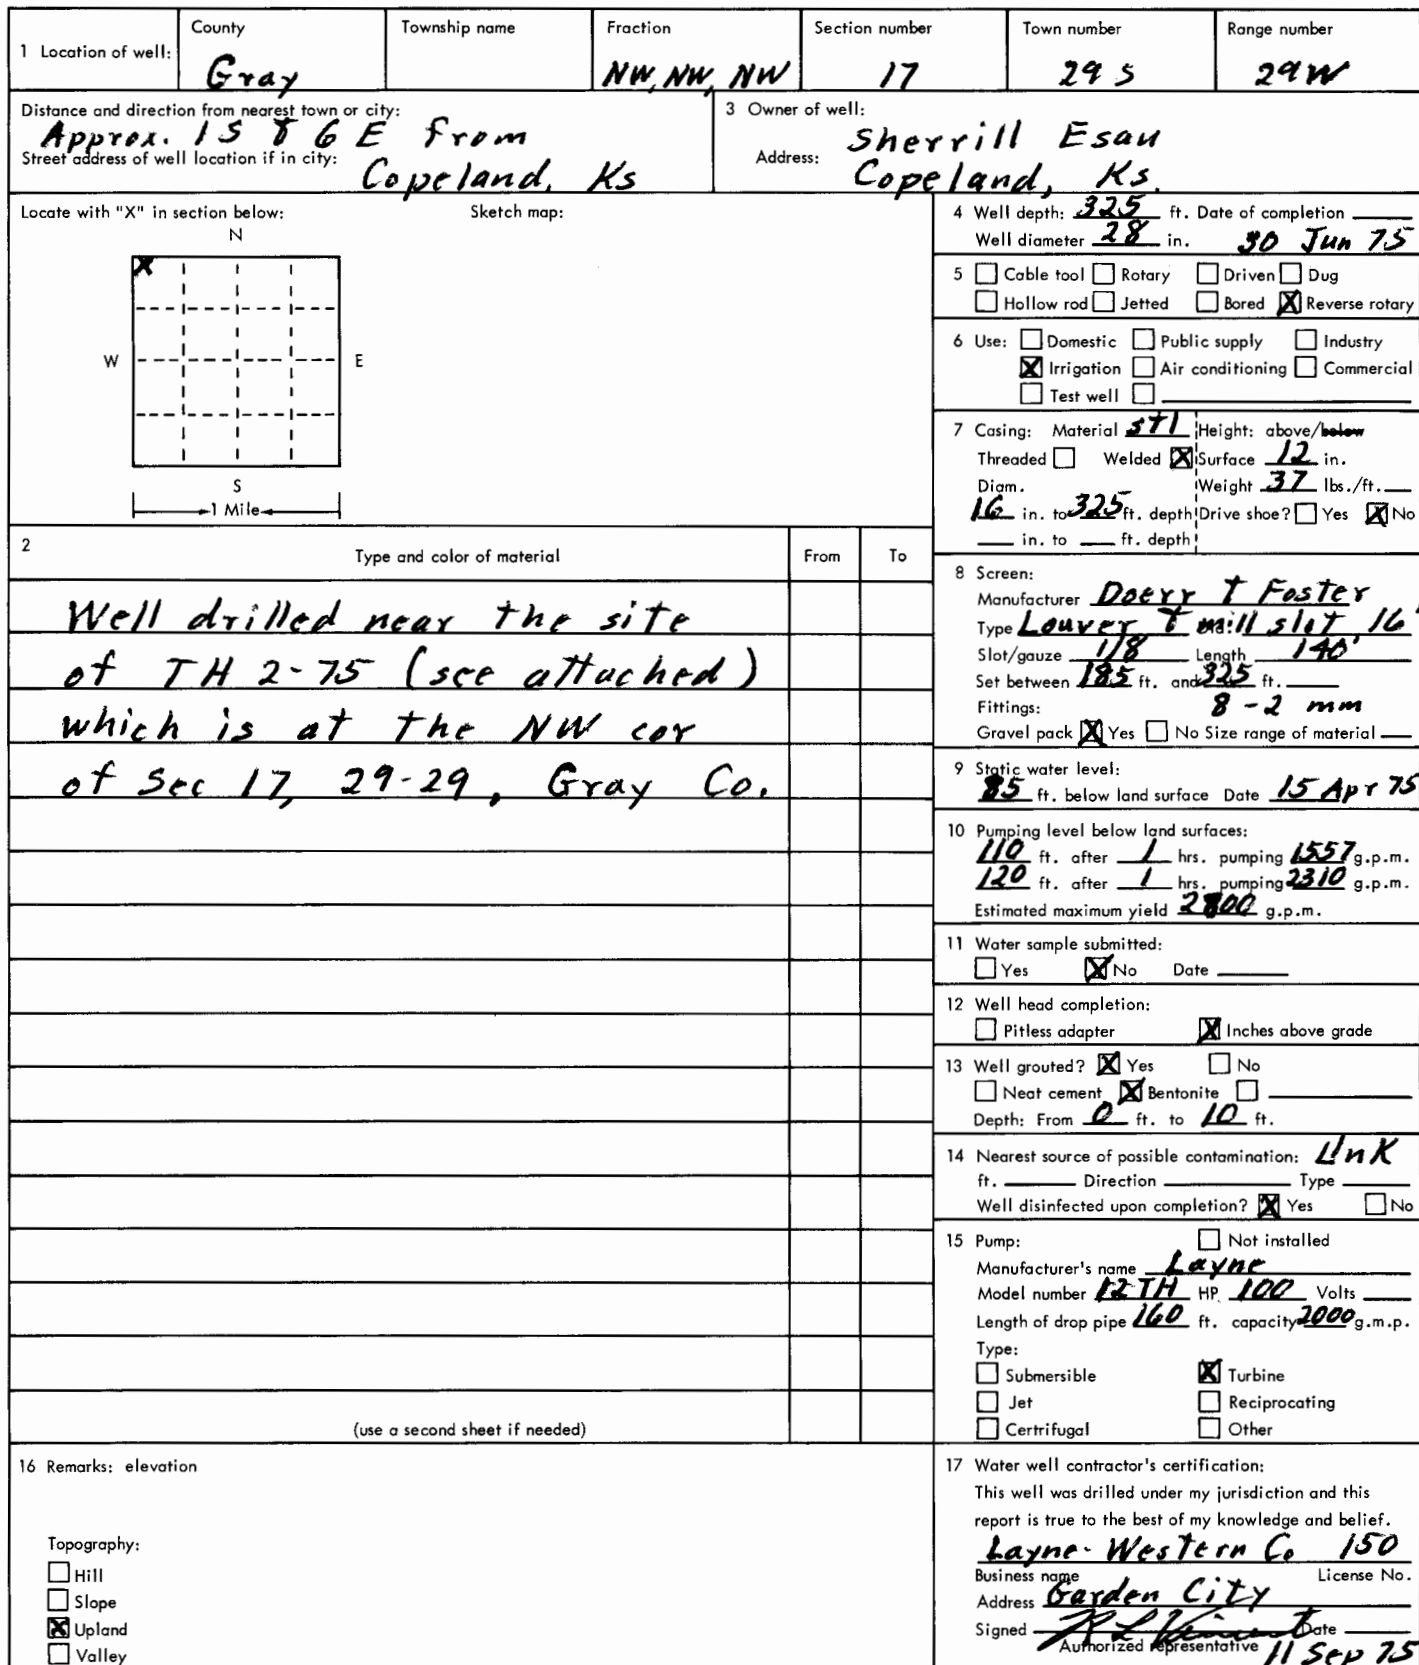 1 Location of well:
County
Gray
Township name
Fraction
NW, NW, NW
Section number
17
Town number
29 S
Range number
29W
Distance and direction from nearest town or city:
Approx. 1 S & 6 E from
Street address of well location if in city:
Copeland, Ks
3 Owner of well:
Sherrill Esau
Address:
Copeland, Ks.
Locate with "X" in section below:
Sketch map:
N
X
W
E
S
1 Mile
4 Well depth: 325 ft. Date of completion
Well diameter 28 in. 30 Jun 75
5 Cable tool Rotary Driven Dug
Hollow rod Jetted Bored X Reverse rotary
6 Use: Domestic Public supply Industry
X Irrigation Air conditioning Commercial
Test well
7 Casing: Material stl Height: above/below
Threaded Welded X Surface 12 in.
Diam. Weight 37 lbs./ft.
16 in. to 325 ft. depth Drive shoe? Yes X No
in. to ft. depth
2
Type and color of material
From
To
Well drilled near the site
of TH 2-75 (see attached)
which is at the NW cor
of Sec 17, 29-29, Gray Co.
(use a second sheet if needed)
8 Screen:
Manufacturer Doerr & Foster
Type Louver & mill slot 16"
Slot/gauze 1/8 Length 140'
Set between 185 ft. and 325 ft.
Fittings: 8 - 2 mm
Gravel pack X Yes No Size range of material
9 Static water level:
85 ft. below land surface Date 15 Apr 75
10 Pumping level below land surfaces:
110 ft. after 1 hrs. pumping 1557 g.p.m.
120 ft. after 1 hrs. pumping 2310 g.p.m.
Estimated maximum yield g.p.m.
11 Water sample submitted:
Yes X No Date
12 Well head completion:
Pitless adapter X Inches above grade
13 Well grouted? X Yes No
Neat cement X Bentonite
Depth: From 0 ft. to 10 ft.
14 Nearest source of possible contamination: Unk
ft. Direction Type
Well disinfected upon completion? X Yes No
15 Pump: Not installed
Manufacturer's name Layne
Model number 12 TH HP 100 Volts
Length of drop pipe 160 ft. capacity 2000 g.m.p.
Type:
Submersible X Turbine
Jet Reciprocating
Certrifugal Other
16 Remarks: elevation
Topography:
Hill
Slope
X Upland
Valley
17 Water well contractor's certification:
This well was drilled under my jurisdiction and this
report is true to the best of my knowledge and belief.
Layne-Western Co 150
Business name License No.
Address Garden City
Signed R L Vincent Date
Authorized representative 11 Sep 75